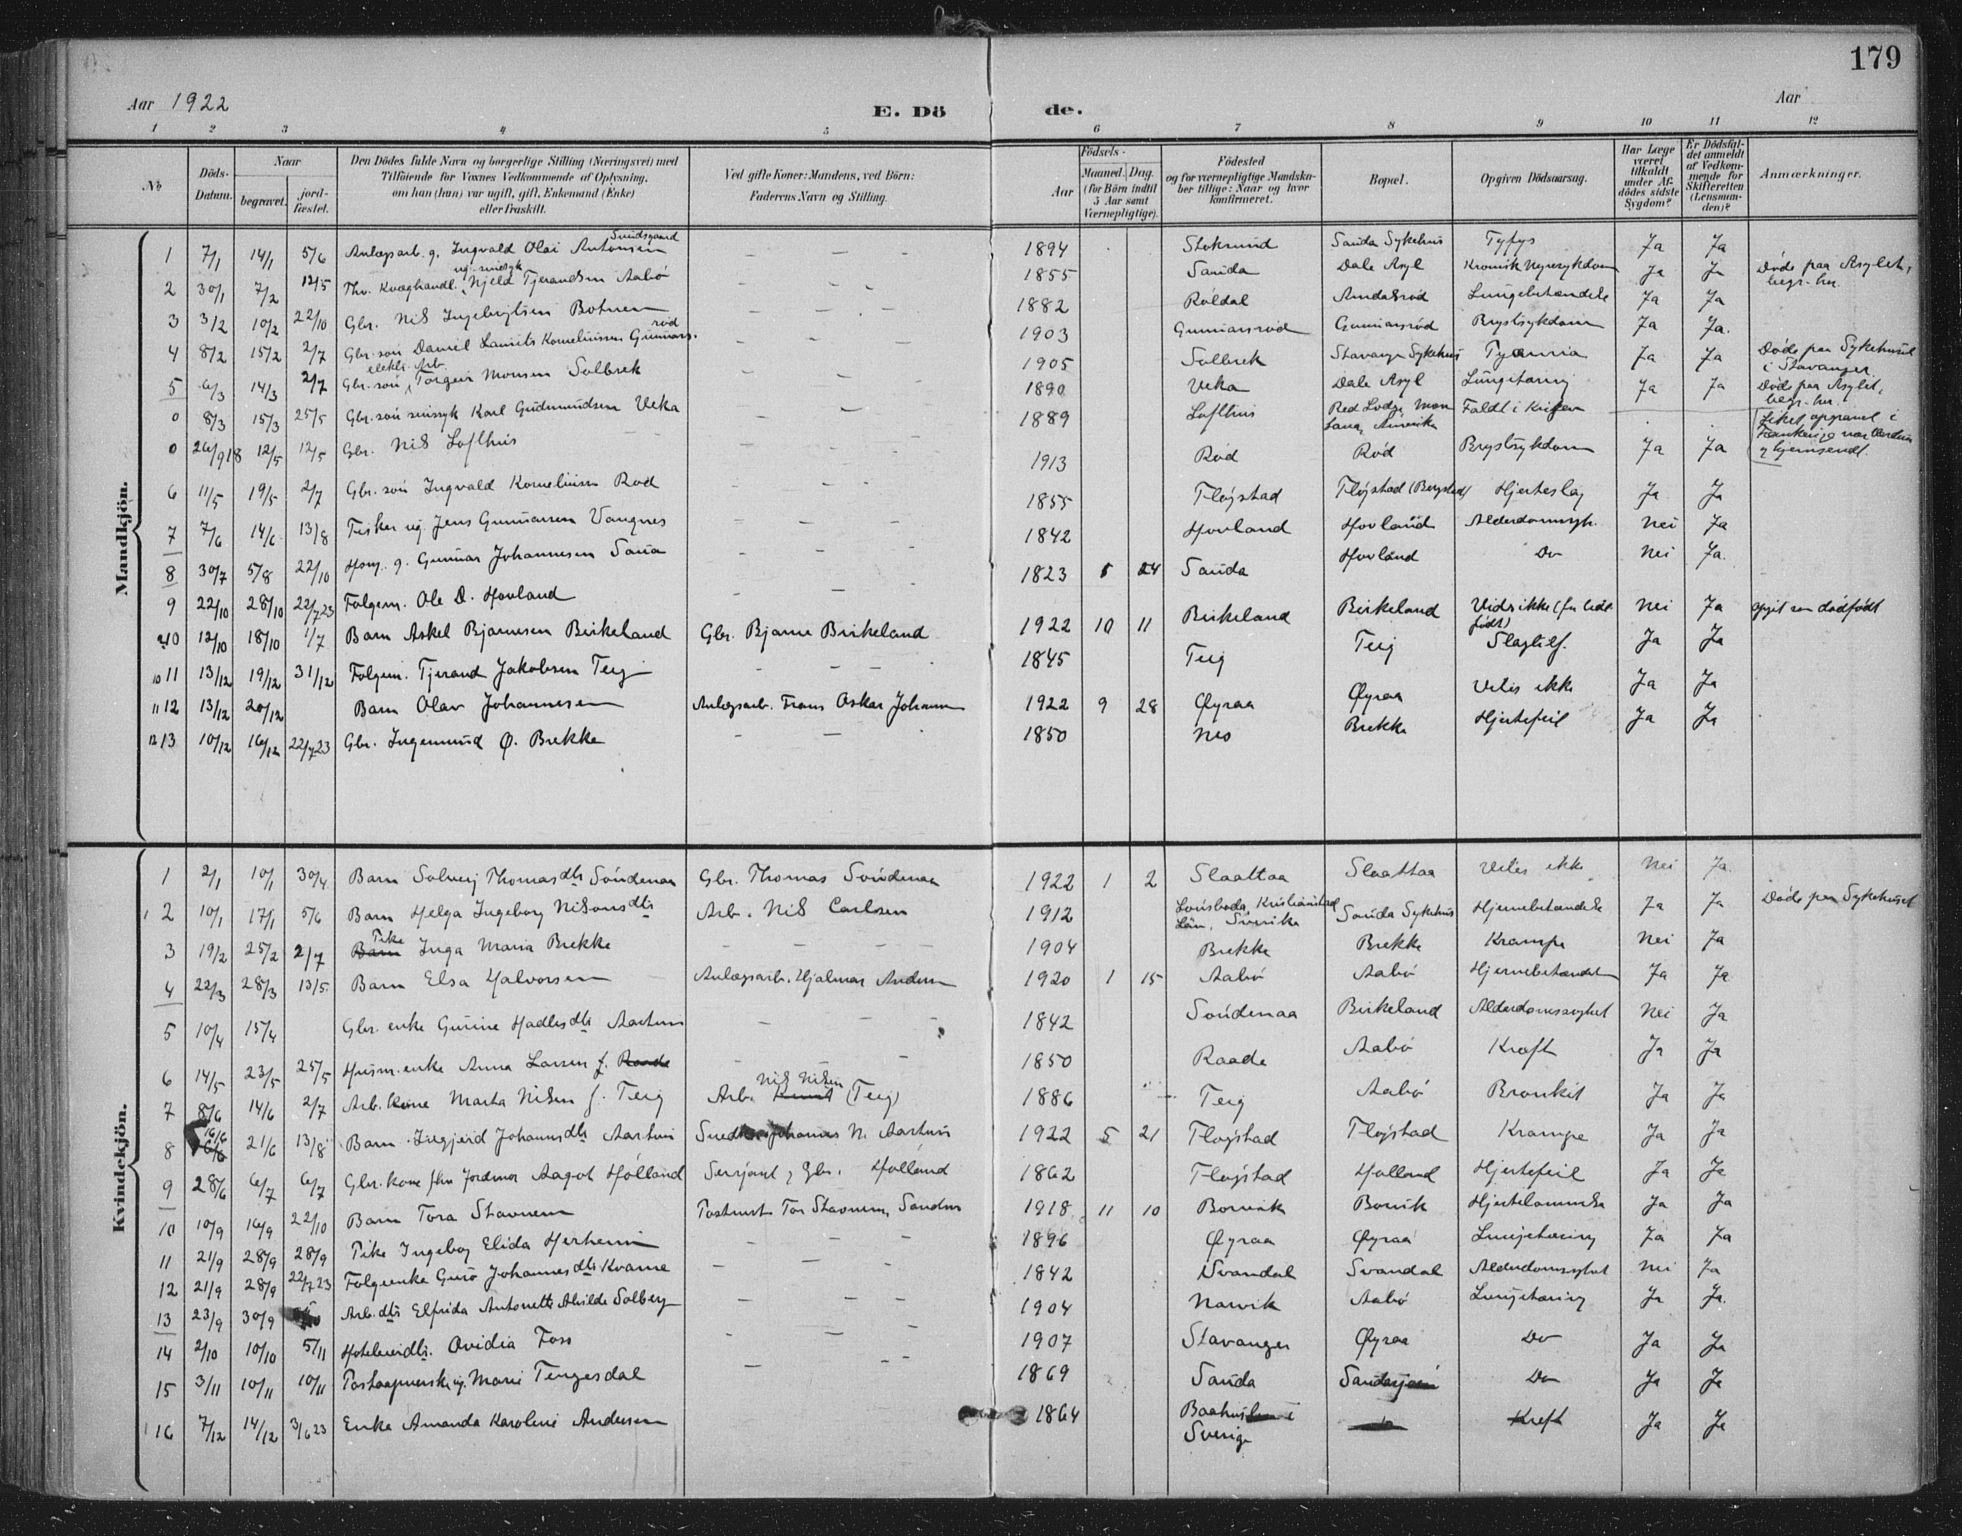 179
Aar 1922
E. Dö de.
Aar
1 2 3 4 5 6 7 8 9 10 11 12
No
Döds-Datum.
Naar
begravet.
jord-fæstet.
Den Dödes fulde Navn og borgerlige Stilling (Næringsvei) med
Tilföiende for Voxnes Vedkommende af Oplysning,
om han (hun) var ugift, gift, Enkemand (Enke)
eller fraskilt.
Ved gifte Koner: Mandens, ved Börn:
Faderens Navn og Stilling.
Födsels-
Aar
Maaned. Dag.
(for Börn indtil 5 Aar samt Værnepligtige).
Födested
og for værnepligtige Mandskaber tillige: Naar og hvor konfirmeret.
Bopæl.
Opgiven Dödsaarsag.
Har Læge været tilkaldt under Afdödes sidste Sygdom?
Er Dödsfaldet anmeldt af Vedkommende for Skifteretten (Lensmanden)?
Anmærkninger.
Mandkjön.
1 7/1 14/1 5/6 Anlægsarb. g. Ingvald Olai Antonsen Sundsgaard — — 1894 Sauda Sykehus Tyfys Ja Ja
2 30/1 7/2 12/5 Fhv. Kvæghandl. ug. sindsyk Njeld Tjerandsen Aabö — — 1855 Sauda Dale Asyl Kronisk Nyresykdom Ja Ja Döde paa Asylet, begr. her.
3 3/2 10/2 22/10 Gbr. Nils Ingebrigtsen Botnen — — 1882 Röldal Amdalsröd Lungebetændelse Ja Ja
4 8/2 15/2 2/7 Gbr. sön Daniel Laurits Korneliussen Gunnarsröd — — 1903 Gunnarsröd Gunnarsröd Brystsykdom Ja Ja.
5 6/3 14/3 2/7 Gbr. sön, elektr. Arb. Torgeir Monsen Solbrek — — 1905 Solbrek Stavanger Sykehus Ja Ja Döde paa Sykehuset i Stavanger
0 8/3 15/3 25/5 Gbr. sön sinsyk Karl Gudmundsen Veka — — 1890 Veka Dale Asyl Lungetæring Ja Ja Döde paa Asylet, begr. her.
0 26/9 18 12/5 12/5 Gbr. Nils Lofthus — — 1889 Lofthus Red Lodge Montana, Amerika Faldt i Krigen
6 11/5 19/5 2/7 Gbr. sön Ingvald Korneliussen Röd — — 1913 Röd Röd Brystsykdom Ja Ja
7 7/6 14/6 13/8 Fisker ug. Jens Gunnarsen Vangnes — — 1855 Flöjstad Flöjstad Hjerteslag Ja Ja
8 30/7 5/8 22/10 Hsm. g. Gunnar Johannesen Sana — — 1842 Hovland Hovland Alderdomssyk. Nei Ja
9 22/10 28/10 22/7 23 Folgem. Ole D. Hovland — — 1823 24 Sauda Hovland Do Nei Ja.
10 12/10 18/10 1/7 Barn Askel Bjarnesen Birkeland Gbr. Bjarne Birkeland 1922 10 11 Birkeland Birkeland Vides ikke Nei Ja opgit som dödfödt
10 11 13/12 19/12 31/12 Folgem. Tjerand Jakobsen Teig — — 1845 Teig Teig Slagtilf. Ja Ja
11 12 13/12 20/12 Barn Olav Johannesen Anlægsarb. Frans Oskar Johansen 1922 9 28 Øyraa Øyraa Vites ikke Ja Ja
12 13 10/12 16/12 22/7 23 Gbr. Ingemund Ø. Brekke — — 1850 Nes Brekke Hjertefeil Ja Ja
Kvindekjön.
1 2/1 10/1 30/4 Barn Solveig Thomasdtr Söndenaa Gbr. Thomas Söndenaa 1922 1 2 Slaattaa Slaattaa Vites ikke Nei Ja.
2 10/1 17/1 5/6 Barn Helga Ingeborg Nilsonsdtr Arb. Nils Carlsen 1912 Kristianstad Län, Sverike Sauda Sykehus Hjernebetændelse Ja Ja Döde paa Sykehuset
3 19/2 25/2 2/7 Barn Pike Inga Maria Brekke — — 1904 Brekke Brekke Krampe Nei Ja
4 22/3 28/3 13/5 Barn Elsa Halvorsen Anlægsarb. Hjalmar Andersen 1920 1 15 Aabö Aabö Hjernebetændels Ja Ja
5 10/4 15/4 Gbr. enke Gurine Hadlesdtr Aartun — — 1842 Söndenaa Birkeland Alderdomssvakhet Nei Ja
6 14/5 23/5 25/5 Husm. enke Anna Larsen f. Raade — — 1850 Raade Aabö Kræft Ja Ja
7 8/6 14/6 2/7 Arb. kone Marta Nilsen f. Teig Arb. Nils Nilsen (Teig) 1886 Teig Aabö Bronkit Ja Ja
8 16/6 21/6 13/8 Barn Ingjerd Johannesdtr Aarthun Snedker Johannes N. Aarthun 1922 5 21 Flogstad Flogstad Krampe Ja Ja
9 28/6 6/7 6/7 Gbr. kone fhv. Jordmor Aagot Hölland Sersjant, Gbr. Hölland 1862 Flogstad Hölland Hjertefeil Ja Ja
10 10/9 16/9 22/10 Barn Tora Stavnem Postmst. Tor Stavnem, Sauda 1918 11 10 Borvik Borvik Hjertelammelse Ja Ja
11 21/9 28/9 28/9 Pike Ingeborg Elida Herheim — — 1896 Øyraa Øyraa Lungetæring Ja Ja
12 21/9 28/9 22/7 23 Folgeenke Guro Johannesdtr Kvame — — 1842 Svandal Svandal Alderdomssvakhet Nei Ja
13 23/9 30/9 Arb. dtr Elfrida Antonette Alvilde Solberg — — 1904 Narvik Aabö Lungetæring Ja Ja.
14 2/10 10/10 5/11 Hoteleierdtr. Ovidia Foss — — 1907 Stavanger Øyraa Do Ja Ja
15 3/11 10/11 10/11 Postaapnerske ug. Marie Tengesdal — — 1869 Sauda Saudasjøen Do Ja Ja
16 7/12 14/12 3/6 23 Enke Amanda Karoline Andersen 1864 Baahuslen i Sverige Kreft Ja Ja